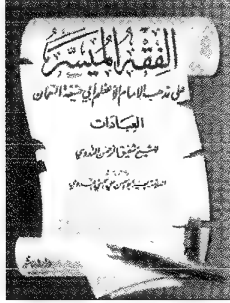 الفقه الميسر
على مذهب الإمام الأعظم أبي حنيفة النعمان
العبادات
للشيخ شفيق الرحمن الندوي